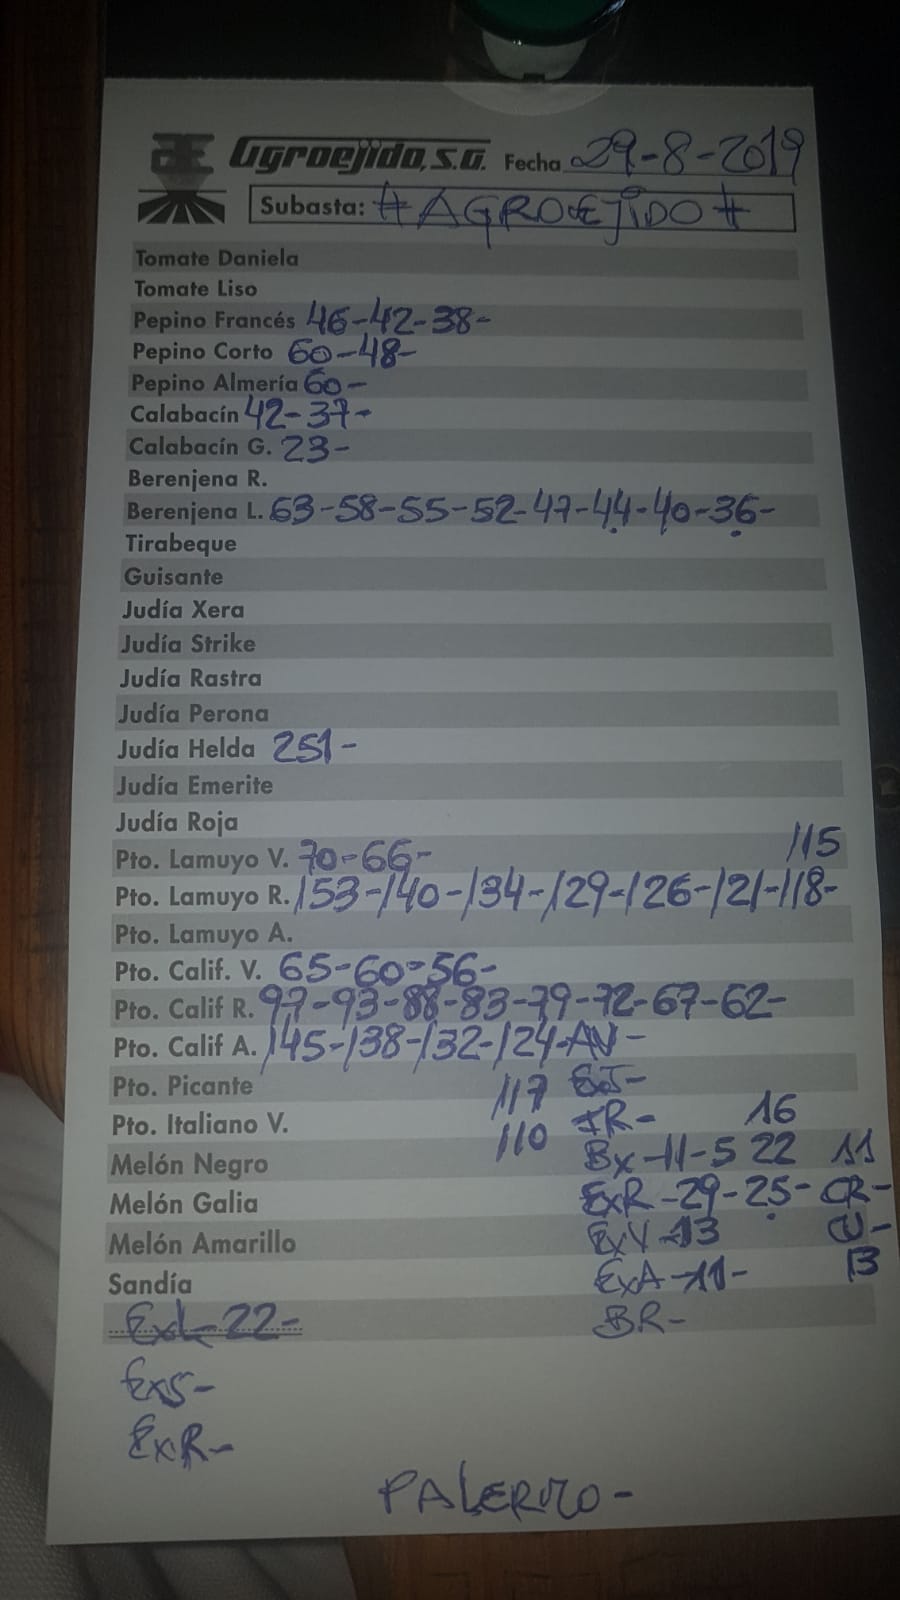 Agroejido, S.A. Fecha 29-8-2019
Subasta: #AGROEJIDO#
Tomate Daniela
Tomate Liso
Pepino Francés 46-42-38-
Pepino Corto 60-48-
Pepino Almería 60-
Calabacín 42-37-
Calabacín G. 23-
Berenjena R.
Berenjena L. 63-58-55-52-47-44-40-36-
Tirabeque
Guisante
Judía Xera
Judía Strike
Judía Rastra
Judía Perona
Judía Helda 251-
Judía Emerite
Judía Roja
Pto. Lamuyo V. 70-66- 115
Pto. Lamuyo R. 153-140-134-129-126-121-118-
Pto. Lamuyo A.
Pto. Calif. V. 65-60-56-
Pto. Calif R. 97-93-88-83-79-72-67-62-
Pto. Calif A. 145-138-132-124-AV-
Pto. Picante 117 ExJ-
Pto. Italiano V. 110 FR- 16
Melón Negro Bx-11-5 22 11
Melón Galia ExR-29-25- CR-
Melón Amarillo ExV-13
Sandía ExA-11- 13
ExL-22- BR-
ExS-
ExR-
PALERMO-